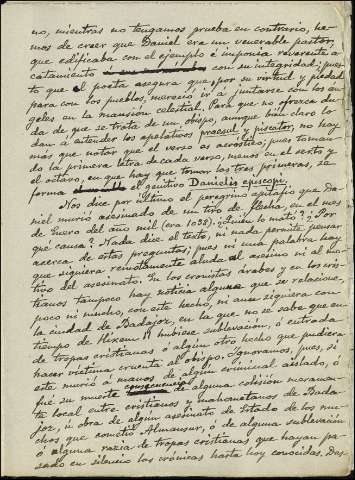 no, mientras no tengamos prueba en contrario, he-
mos de creer que Daniel era un venerable pastor,
que edificaba con el ejemplo é imponía reverente a-
catamiento con su integridad; pues-
to que el poeta asegura que por su virtud y piedad
para con los pueblos, mereció ir á juntarse con los án-
geles en la mansión celestial. Para que no ofrezca du-
da de que se trata de un obispo, aunque bien claro lo
dan á entender los apelativos praesul y piscator, no hay
más que notar que el verso es acróstico; pues toman-
do la primera letra de cada verso, menos en el sexto y
el octavo, en que hay que tomar las tres primeras, se
forma el genitivo Danielis episcopi.
Nos dice por último el peregrino epitafio que Da-
niel murió asesinado de un tiro de flecha, en el mes
de Enero del año mil (era 1038). ¿Quién lo mató? ¿Por
qué causa? Nada dice el texto, ni nada permite pensar
acerca de estas preguntas; pues ni una palabra hay
que siquiera remotamente aluda al asesino ni al mo-
tivo del asesinato. En los cronistas árabes y en los cris-
tianos tampoco hay noticia alguna que se relacione,
poco ni mucho, con este hecho, ni aun siquiera con
la ciudad de Badajoz, en la que no se sabe que en
tiempo de Hixem II hubiese sublevación, ó entrada
de tropas cristianas ó algún otro hecho que pudiera
hacer víctima cruenta al obispo. Ignoramos, pues, si
este murió á manos de algún criminal aislado, ó
fué su muerte consecuencia de alguna colisión meramen-
te local entre cristianos y mahometanos de Bada-
joz, ú obra de algún asesinato de Estado de los mu-
chos que cometió Almansur, ó de alguna sublevación
ó alguna razia de tropas cristianas que hayan pa-
sado en silencio las crónicas hasta hoy conocidas. Des-